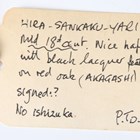 HIRA-SANKAKU-YARI
mid 18th cent. Nice haft
with black lacquer
on red oak (AKAGASHI)
signed:?
No ishizuka.
P.T.O.